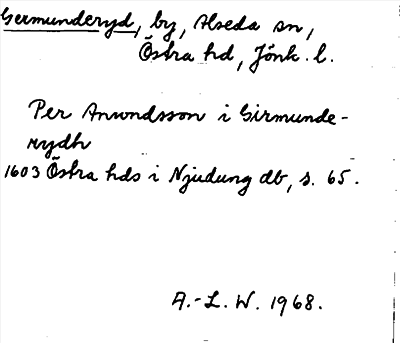 Germunderyd, by, Alseda sn,
Östra hd, Jönk. l.
Per Anvndsson i Girmunde-
rydh
1603 Östra hds i Njudung db, s. 65.
A.-L. W. 1968.